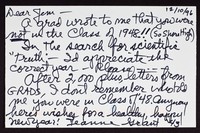 12/10/96
Dear Jim —
A grad wrote to me that you were
not in the Class of 1948!! (So Show High)
In the search for scientific
"Truth" — I'd appreciate the
correct year. Please —
After 2,000 plus letters from
GRADS, I don't remember who told
me you were in Class of '48. Anyway
here's wishes for a healthy, happy
new year! Jeanne